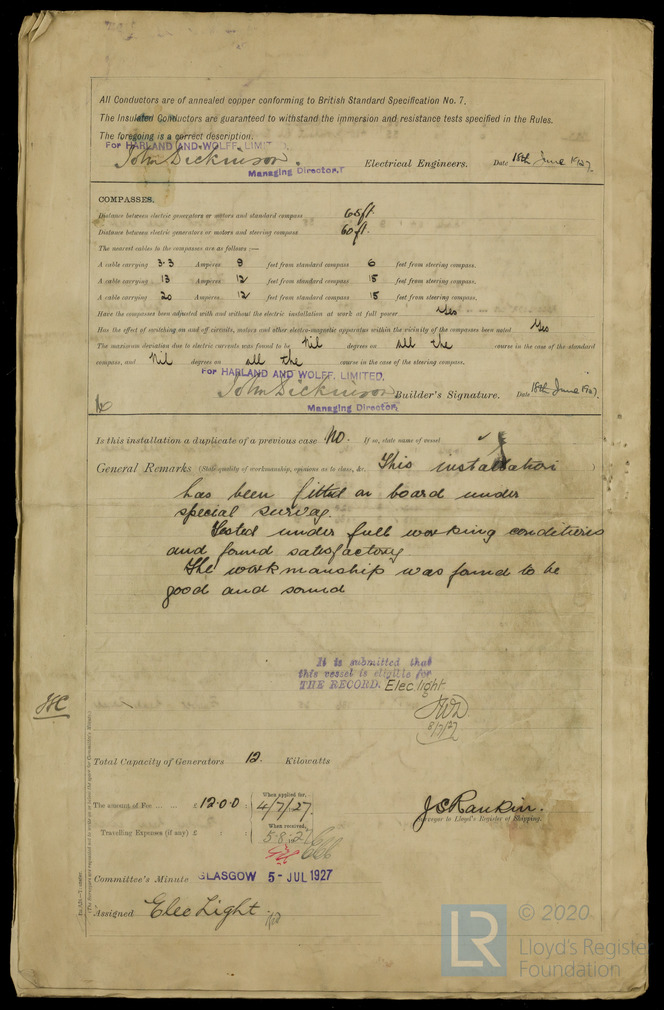 All Conductors are of annealed copper conforming to British Standard Specification No. 7.
The Insulated Conductors are guaranteed to withstand the immersion and resistance tests specified in the Rules.
The foregoing is a correct description.
For HARLAND AND WOLFF, LIMITED.
John Dickinson. Electrical Engineers. Date 18th June 1927.
Managing Director.
COMPASSES.
Distance between electric generators or motors and standard compass 65 ft.
Distance between electric generators or motors and steering compass 60 ft.
The nearest cables to the compasses are as follows :—
A cable carrying 3.3 Amperes 9 feet from standard compass 6 feet from steering compass.
A cable carrying 13 Amperes 12 feet from standard compass 15 feet from steering compass.
A cable carrying 20 Amperes 12 feet from standard compass 15 feet from steering compass.
Have the compasses been adjusted with and without the electric installation at work at full power Yes
Has the effect of switching on and off circuits, motors and other electro-magnetic apparatus within the vicinity of the compasses been noted Yes
The maximum deviation due to electric currents was found to be Nil degrees on all the course in the case of the standard
compass, and Nil degrees on all the course in the case of the steering compass.
For HARLAND AND WOLFF, LIMITED.
John Dickinson Builder's Signature. Date 18th June 1927.
Managing Director.
Is this installation a duplicate of a previous case No. If so, state name of vessel
General Remarks (State quality of workmanship, opinions as to class, &c. This installation )
has been fitted on board under
special survey.
Tested under full working conditions
and found satisfactory
The workmanship was found to be
good and sound
It is submitted that
this vessel is eligible for
THE RECORD. Elec light.
JWD
8/7/27
Total Capacity of Generators 12. Kilowatts
The amount of Fee ... ... £ 12:0:0 : When applied for, 4/7/27.
Travelling Expenses (if any) £ : : When received, 5.8.27
J S Rankin.
Surveyor to Lloyd's Register of Shipping.
Committee's Minute GLASGOW 5 - JUL 1927
Assigned Elec Light.
© 2020
LR
Lloyd's Register
Foundation